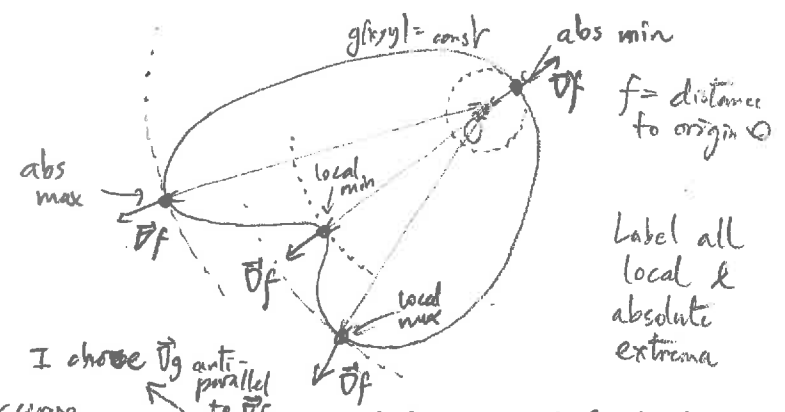 g(x,y) = const
abs min
∇f
f = distance
to origin O
O
abs
max
∇f
local
min
∇f
Label all
local &
absolute
extrema
local
max
∇f
I choose ∇g anti-
parallel
to ∇f